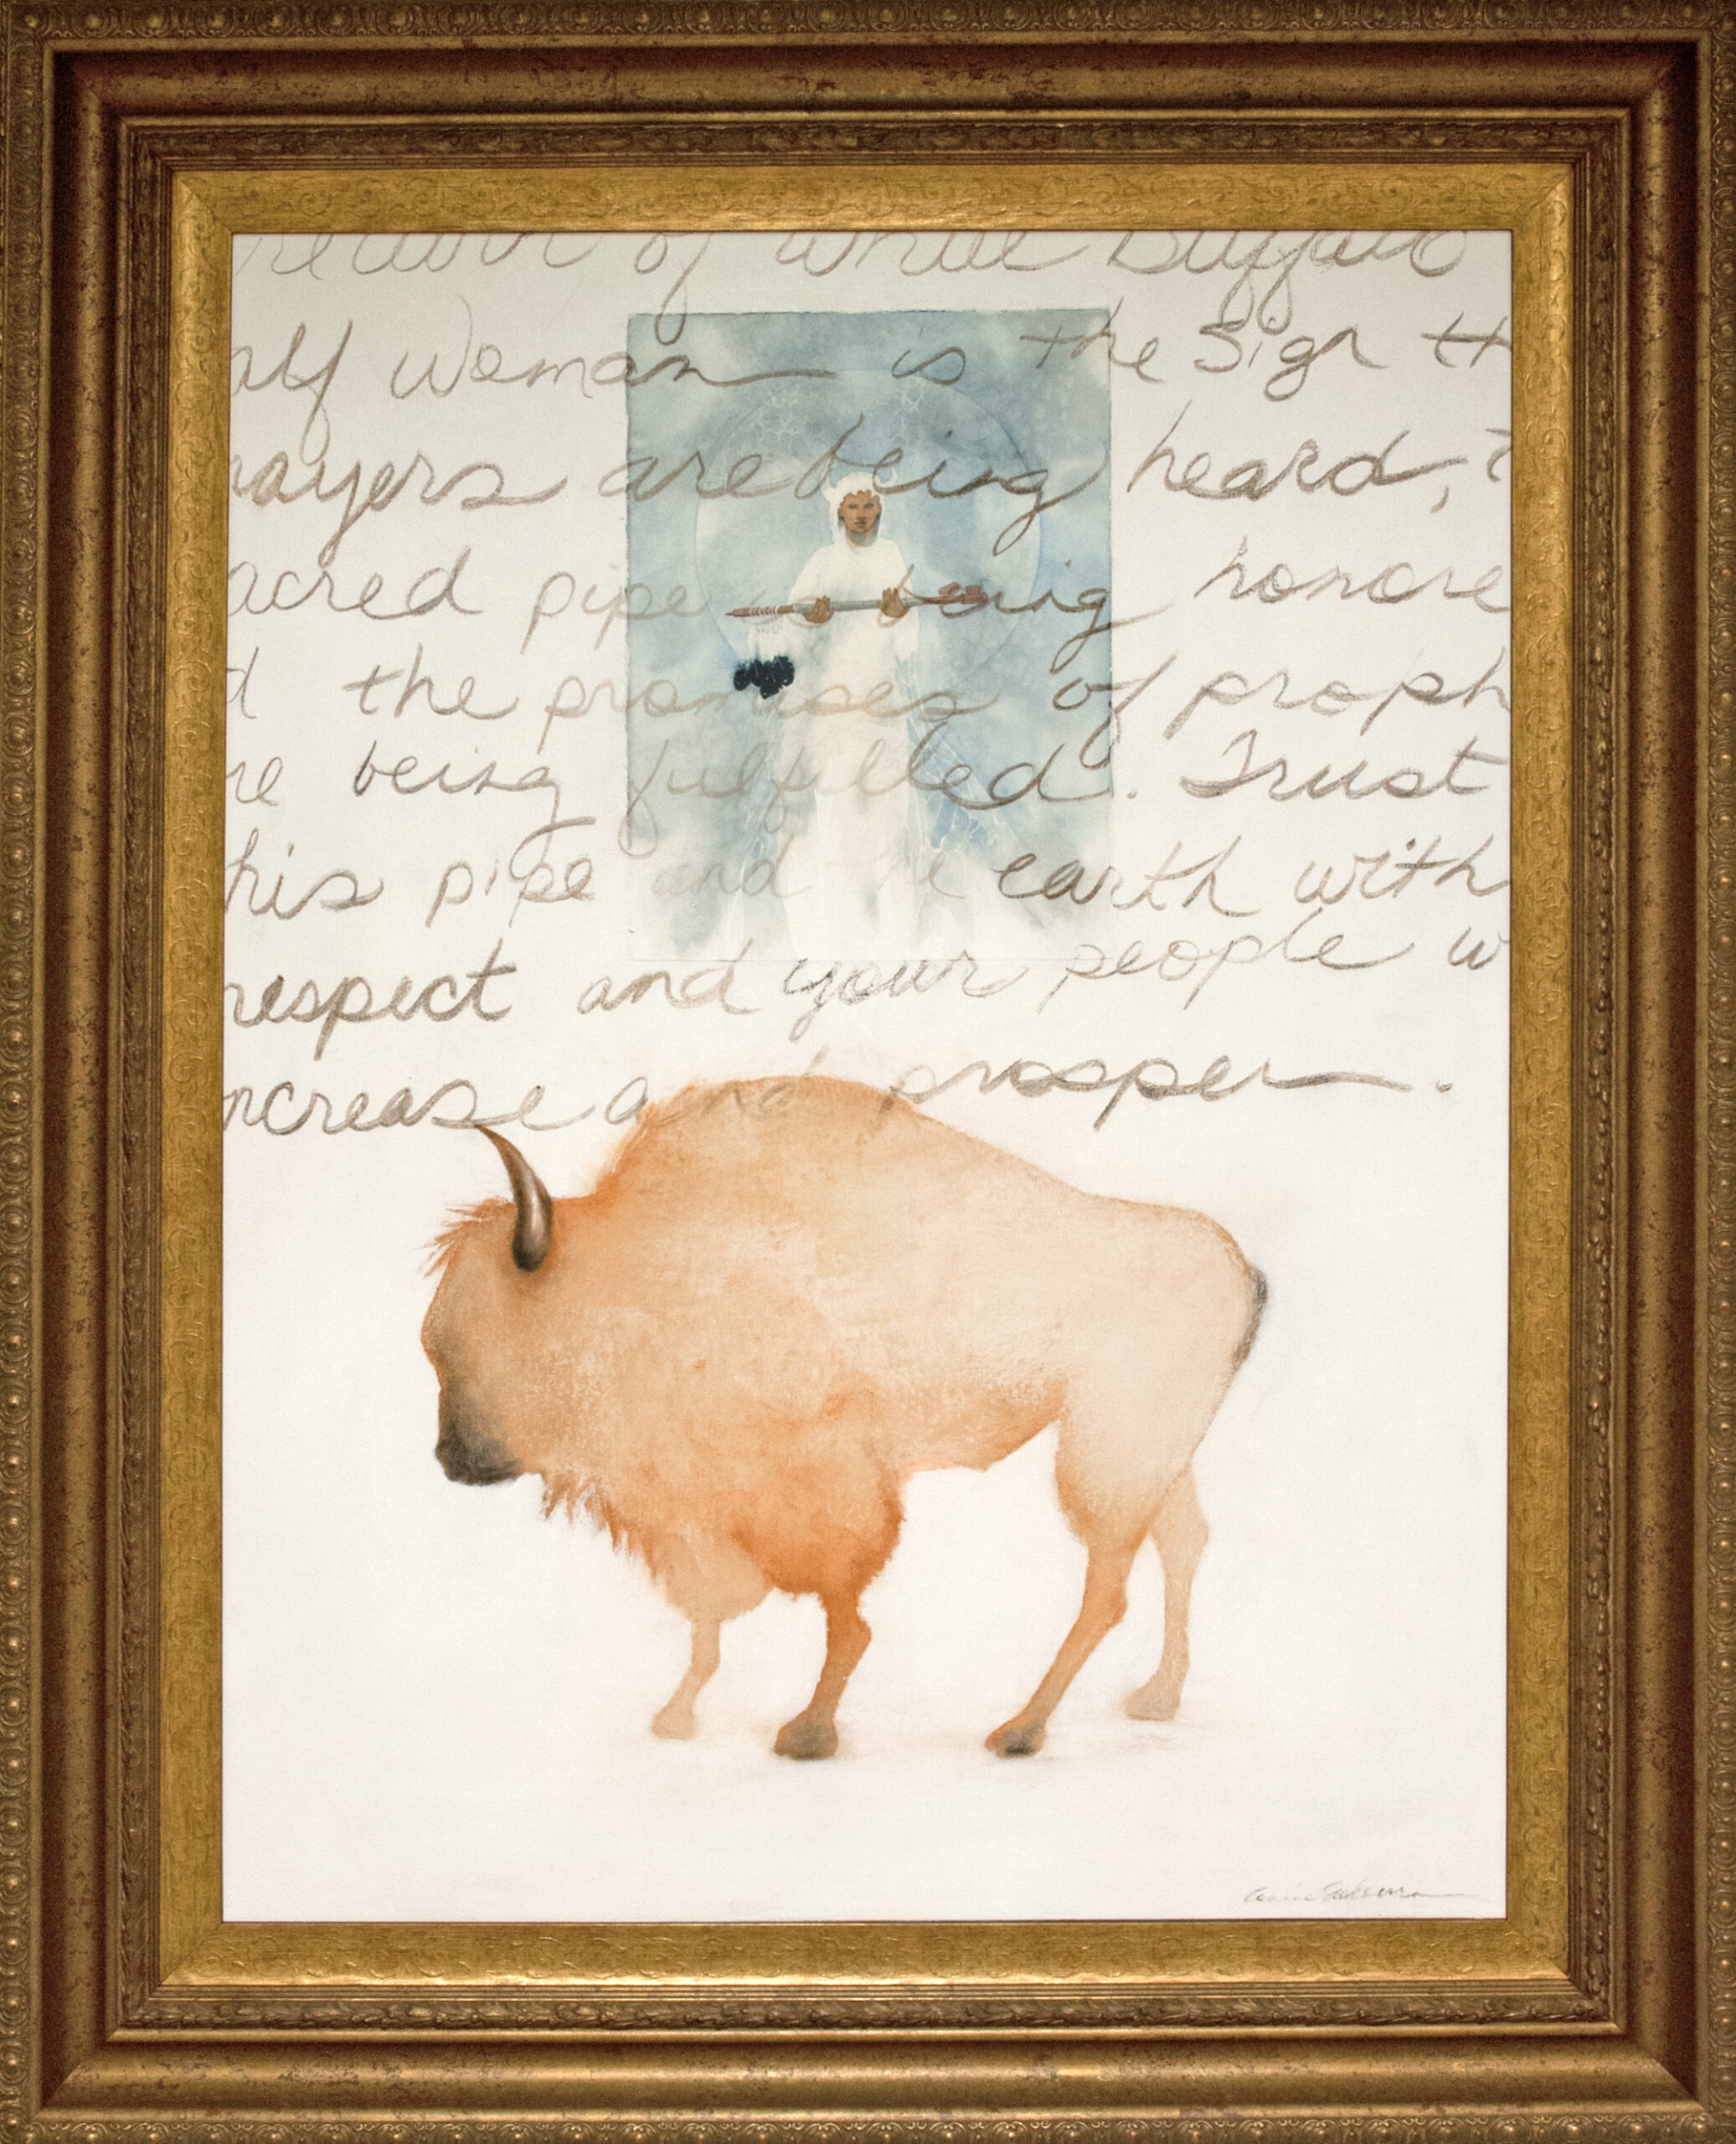 return of white Buffalo
alf Woman is the Sign th
rayers are being heard,
acred pipe is being honore
d the promises of proph
re being fulfilled. Trust
his pipe and the earth with
respect and your people w
ncrease and prosper.